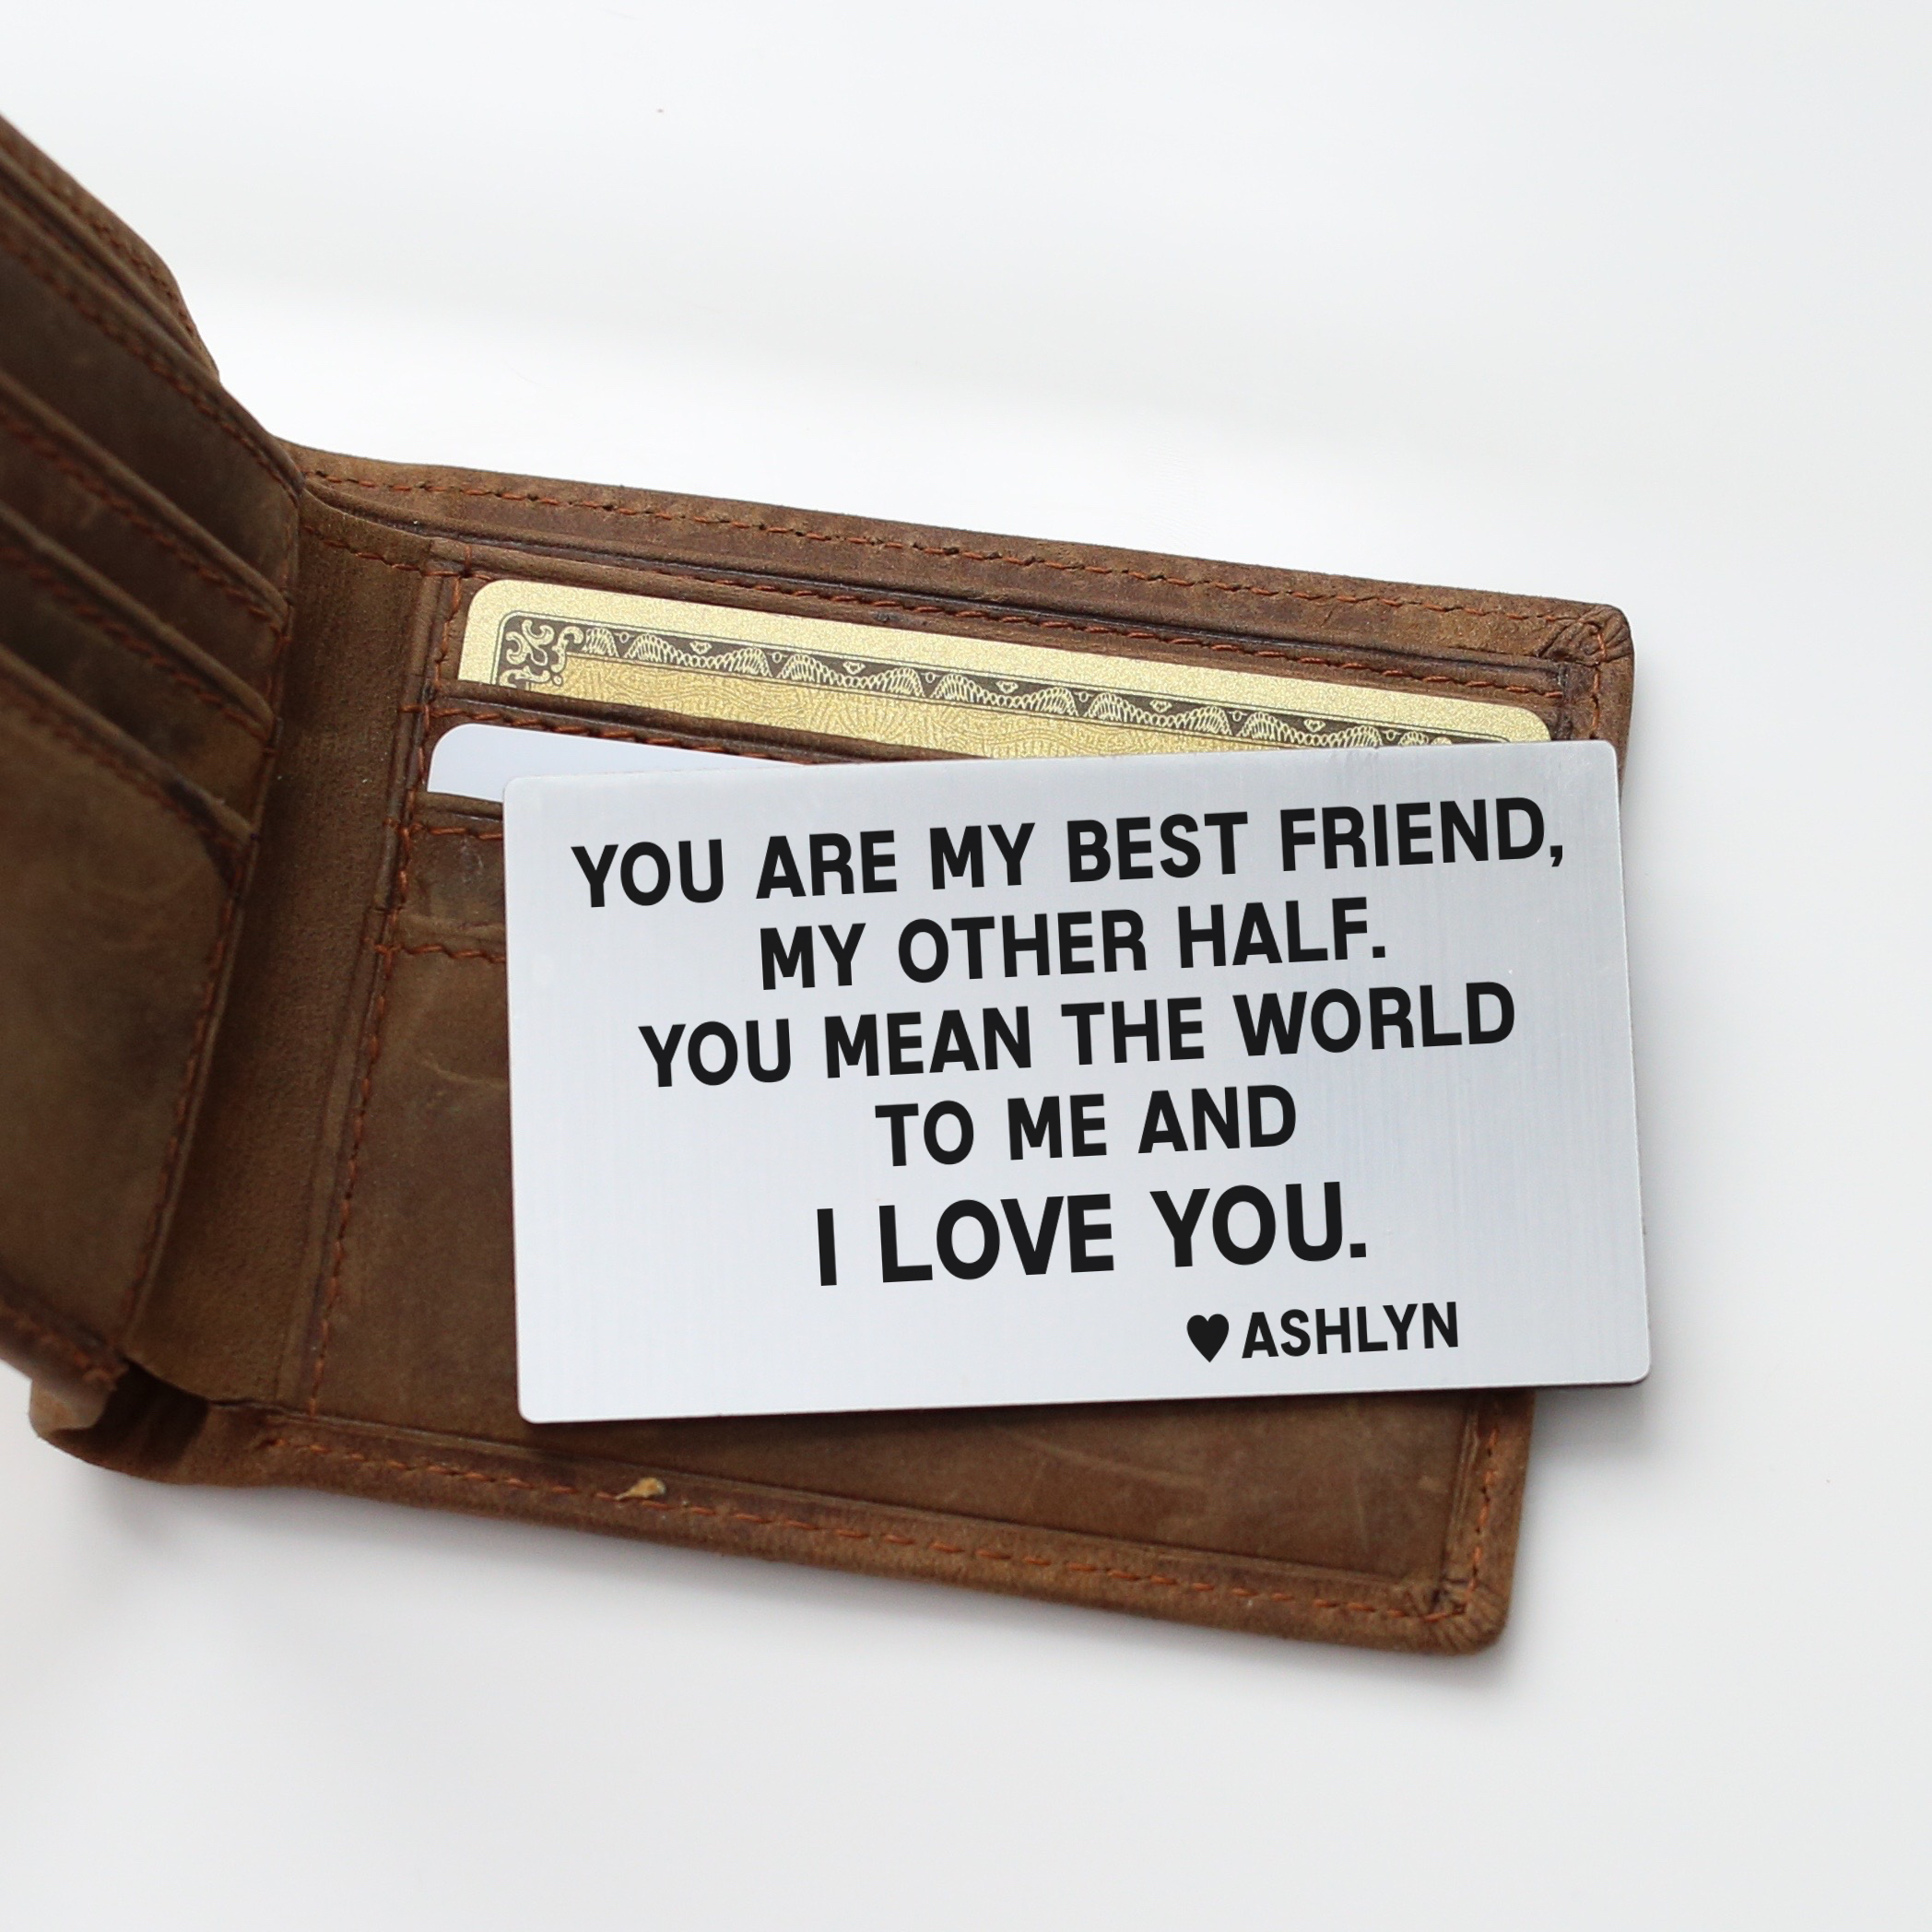 YOU ARE MY BEST FRIEND,
MY OTHER HALF.
YOU MEAN THE WORLD
TO ME AND
I LOVE YOU.
♥ ASHLYN